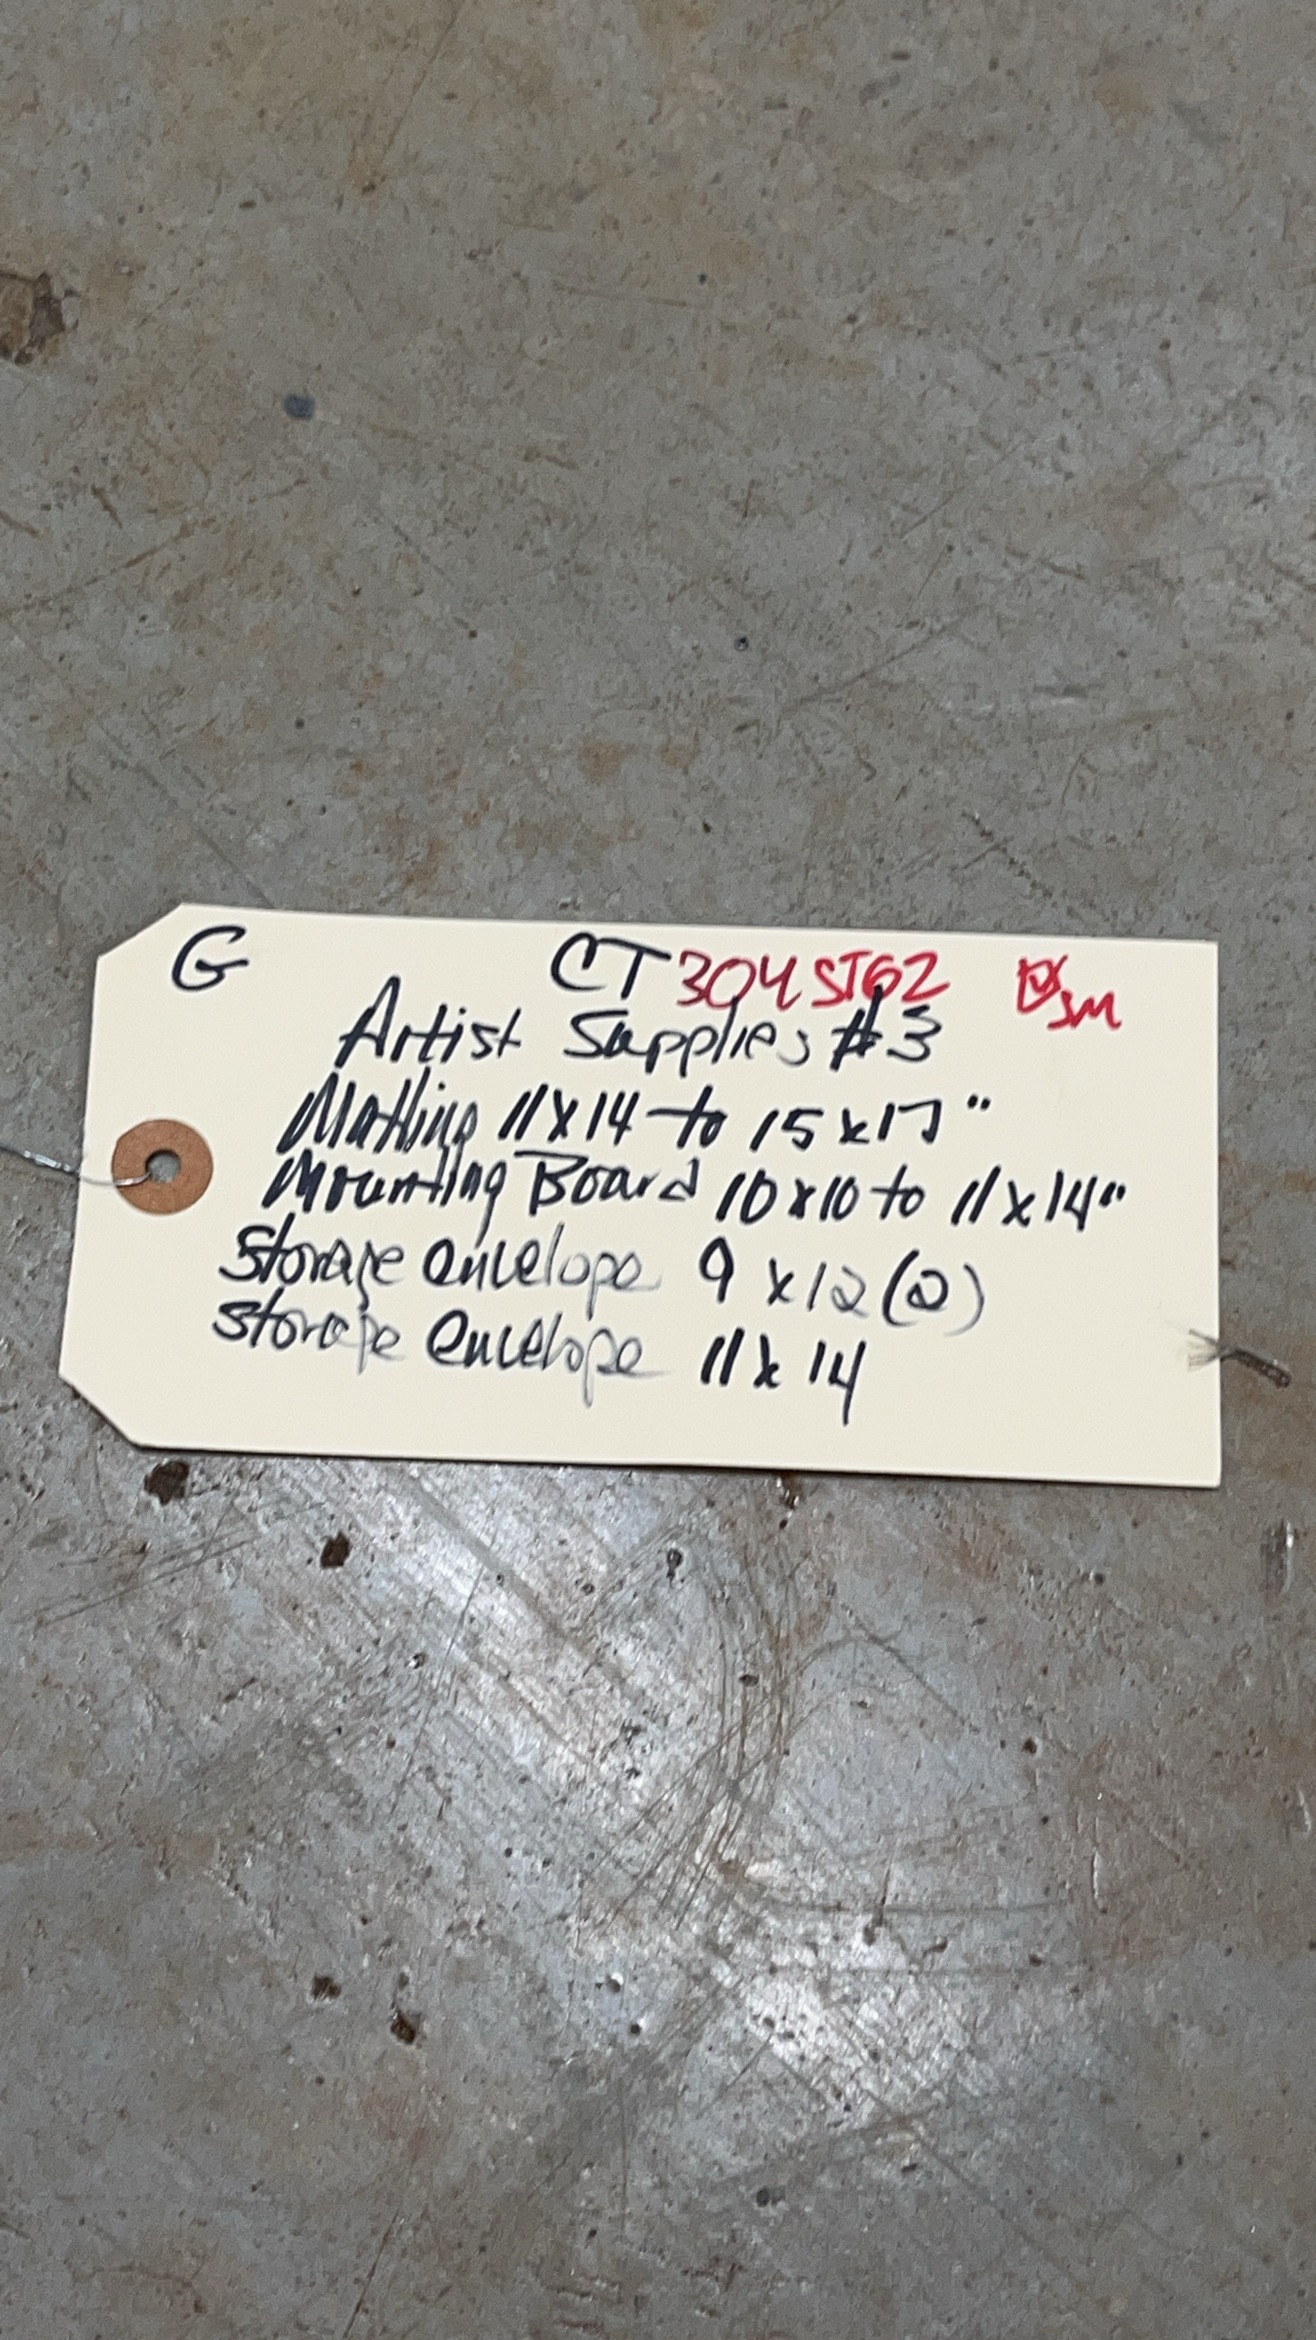 G CT 304STG2 ☑ SM
Artist Supplies #3
Matting 11x14 to 15x17"
Mounting Board 10x10 to 11x14"
Storage envelope 9 x12 (2)
Storage envelope 11x14